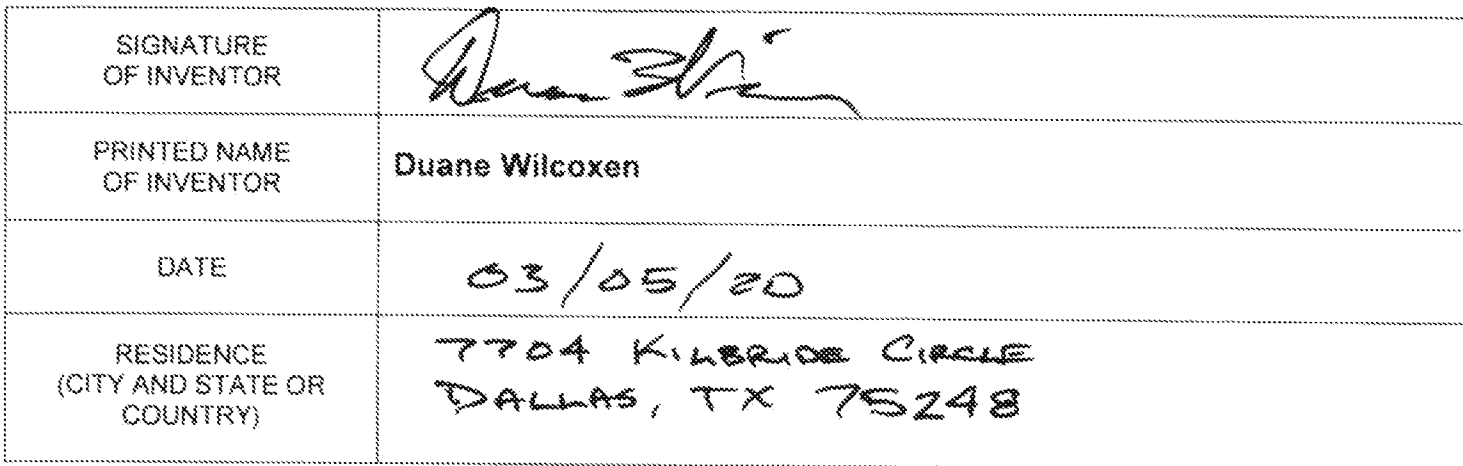 SIGNATURE
OF INVENTOR
PRINTED NAME
OF INVENTOR
Duane Wilcoxen
DATE
03/05/20
RESIDENCE
(CITY AND STATE OR
COUNTRY)
7704 KILBRIDE CIRCLE
DALLAS, TX 75248